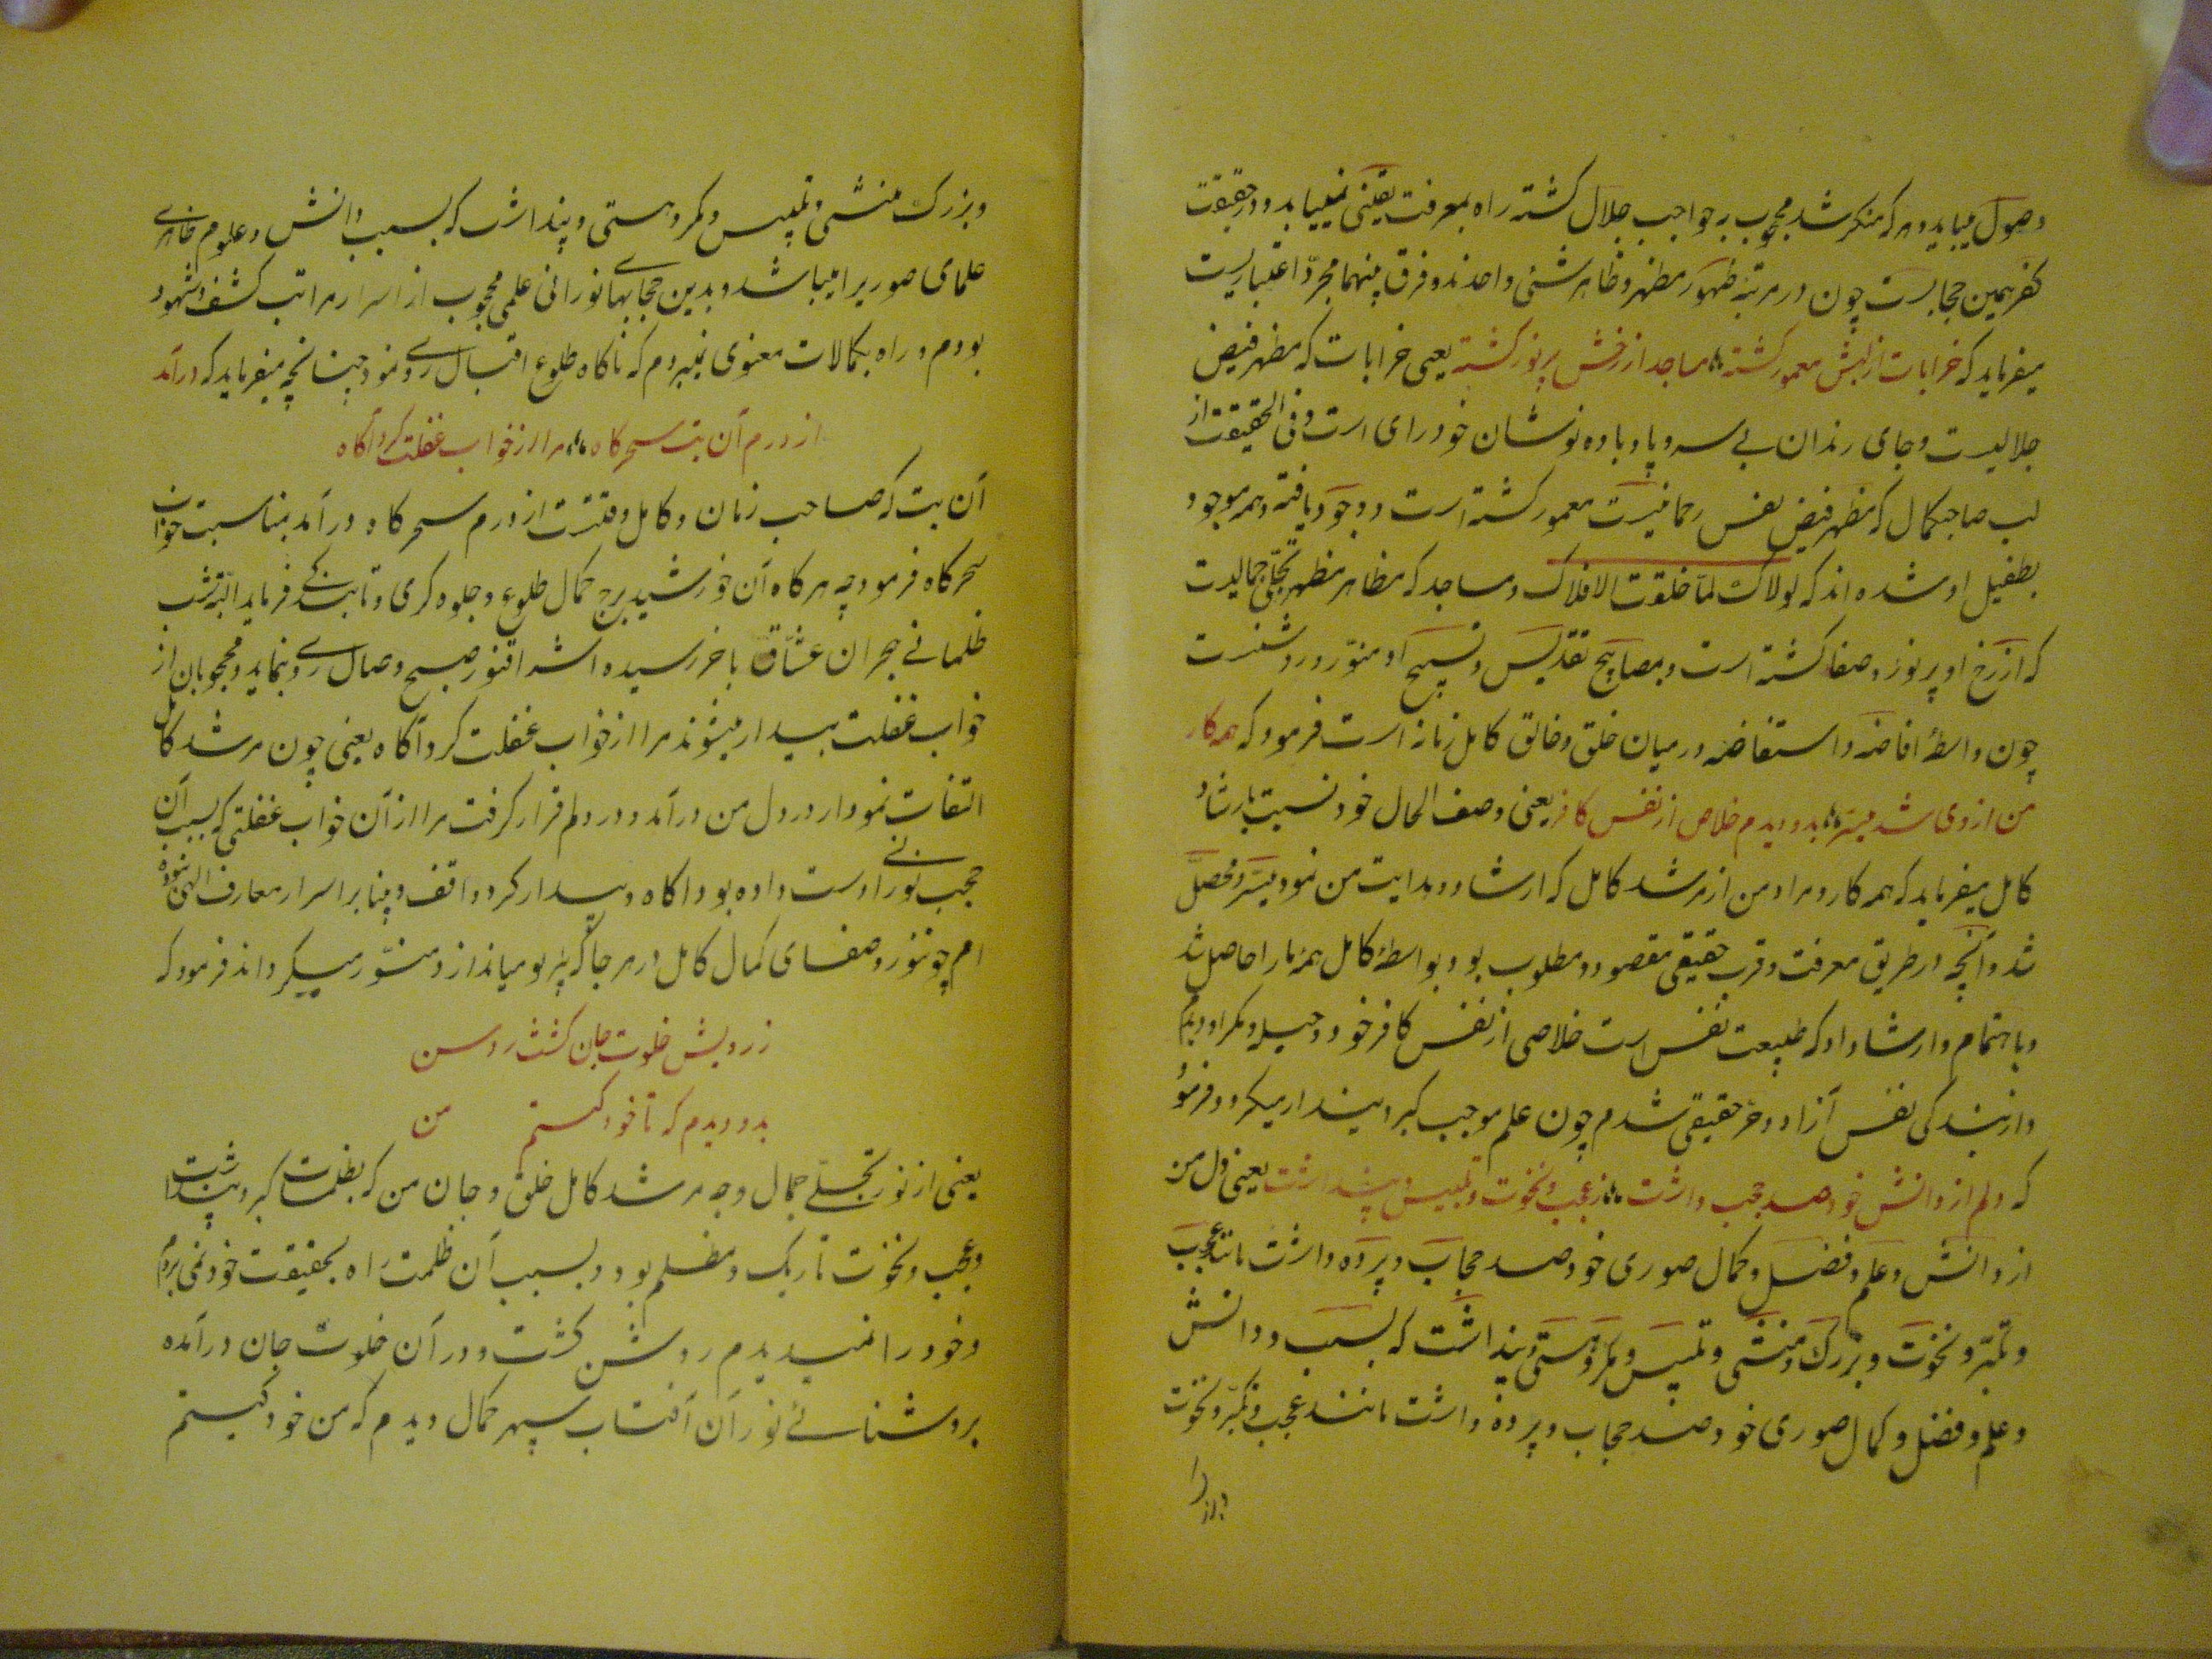 وصول میباید و هر که منکر شد محجوب بحواجب جلال کشته راه بمعرفت یقینی نمییابد و در حقیقت
کفر همین حجابست چون در مرتبه ظهور مظهر و ظاهر شئی واحدند و فرق بینهما مجرّد اعتباریست
میفرماید که خرابات از لبش معمور کشته مساجد از رخش پر نور کشته یعنی خرابات که مظهر فیض
جلالیست و جای رندان بی سر و پا و باده نوشان خودرای است و فی الحقیقت از
لب صاحبکمال که مظهر فیض نفس رحمانیست معمور کشته است و وجود یافته و همه موجود
بطفیل او شده اند که لولاک لما خلقت الافلاک و مساجد که مظاهر مظهر تجلّی جمالیست
که از رخ او پر نور و صفا کشته است و بمصابیح تقدیس و تسبیح او منوّر و روشنست
چون واسطهٔ افاضه و استفاضه در میان خلق و خالق کامل زمانه است فرمود که همه کار
من از وی شد میسّر بدو دیدم خلاص از نفس کافر یعنی وصف الحال خود نسبت بارشاد
کامل میفرماید که همه کار و مراد من از مرشد کامل که ارشاد و هدایت من نمود میسّر و محصّل
شد و آنچه در طریق معرفت و قرب حقیقی مقصود و مطلوب بود بواسطهٔ کامل همه مارا حاصل شد
و باهتمام و ارشاد او که طبیعت نفس است خلاصی از نفس کافر خود و حیله و مکر او دیدم
و از بندکی نفس آزاد و حرّ حقیقی شدم چون علم موجب کبر و پندار میکردد فرمود
که دلم از دانش خود صد حجب داشت ز عجب و نخوت و تلبیس و پنداشت یعنی دل من
از دانش و علم و فضل و کمال صوری خود صد حجاب و پرده داشت مانند عجب
و تکبّر و نخوت و بزرک منشی و تلبیس و مکر و هستی و پنداشت که بسبب و دانش
و علم و فضل و کمال صوری خود صد حجاب و پرده داشت مانند عجب و تکبّر و نخوت
و بزرک منشی و تلبیس و مکر و هستی و پنداشت که بسبب دانش و علوم ظاهری
علمای صوریرا میباشد و بدین حجابهای نورانی علمی محجوب از اسرار مراتب کشف و شهود
بودم و راه بکمالات معنوی نمیبردم که ناکاه طلوع اقبال روی نمود چنانچه میفرماید که درآمد
از درم آن بت سحرکاه مرا از خواب غفلت کرد آکاه
آن بت که صاحب زمان و کامل وقتست از درم سحرکاه درآمد بمناسبت خواب
سحرکاه فرمود چه هرکاه آن خورشید برج کمال طلوع و جلوه کری و تابندکی فرماید البته شب
ظلمانی هجران عشّاق باخر رسیده اشراق نور صبح وصال روی بنماید و محجوبان از
خواب غفلت بیدار میشوند مرا از خواب غفلت کرد آکاه یعنی چون مرشد کامل
التفات نمود از در دل من درآمد و در دلم قرار کرفت مرا از آن خواب غفلتی که بسبب آن
حجب نورانی دست داده بود اکاه و بیدار کرد و واقف و بینا بر اسرار معارف الهی نموده
ام چو نور و صفای کمال کامل در هر جا که پرتو میاندازد منوّر میکرداند فرمود که
ز رویش خلوت جان کشت روشن
بدو دیدم که تا خود کیستم من
یعنی از نور تجلّی جمال وجه مرشد کامل خلوت و جان من که بظلمات کبر و پنداشت
و عجب و نخوت تاریک و مظلم بود و بسبب آن ظلمت راه بحقیقت خود نمی بردم
و خود را نمیدیدم روشن کشت و در آن خلوت جان درآمده
بروشنائی نور آن آفتاب سپهر کمال دیدم که من خود کیستم